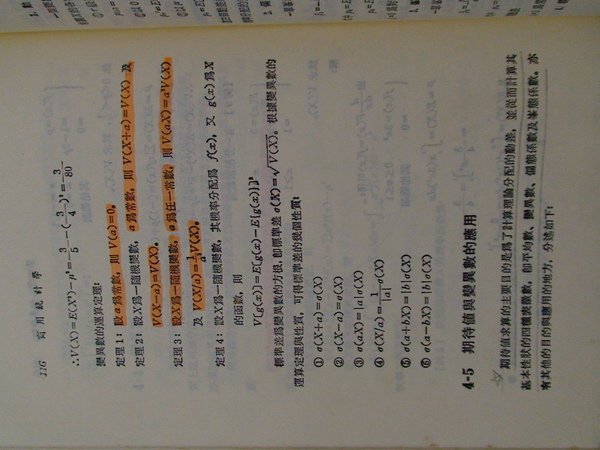 116 商用統計學
∴V(X)=E(X²)-μ²=3/5-(3/4)²=3/80
變異數的運算定理：
定理1：設a為常數，則 V(a)=0。
定理2：設X為一隨機變數，a為常數，則 V(X+a)=V(X) 及
V(X-a)=V(X)。
定理3：設X為一隨機變數，a為任一常數，則 V(aX)=a²V(X)
及 V(X/a)=1/a² V(X)。
定理4：設X為一隨機變數，其機率分配為 f(x)，又 g(x) 為X
的函數，則
V[g(x)]=E[g(x)-E[g(x)]]²
標準差為變異數的方根，即標準差 σ(X)=√V(X)。根據變異數的
運算定理與性質，可得標準差的幾個性質：
① σ(X+a)=σ(X)
② σ(X-a)=σ(X)
③ σ(aX)=|a|σ(X)
④ σ(X/a)=1/|a| σ(X)
⑤ σ(a+bX)=|b|σ(X)
⑥ σ(a-bX)=|b|σ(X)
4-5 期待值與變異數的應用
期待值演算的主要目的是為了計算理論分配的動差，並從而計算其
基本性狀的四種表徵數，即平均數、變異數、偏態係數及峯態係數。亦
有其他的目的與應用的地方，分述如下：